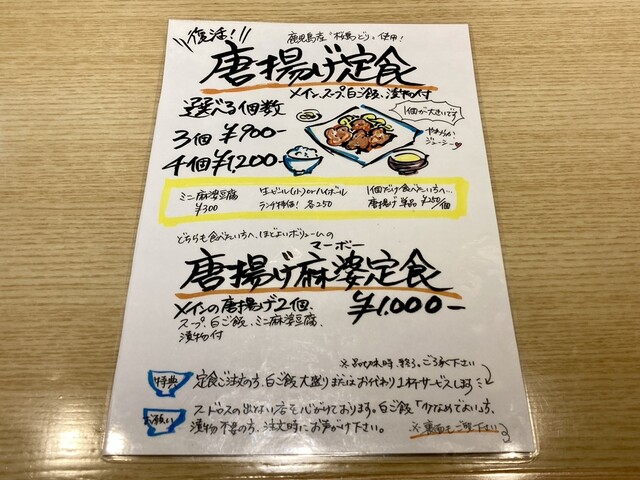 復活！
鹿児島産"桜島どり"使用！
唐揚げ定食
メイン、スープ、白ご飯、漬物付
選べる個数
1個が大きいです
3個 ¥900-
やわらか
ジューシー♥
4個 ¥1,200-
ミニ麻婆豆腐
¥300
生ビール(小)orハイボール
ランチ特価！ 各250
1個だけ食べたい方へ
唐揚げ 単品 ¥250/個
どちらも食べたい方へ、ほどよいボリュームの
マーボー
唐揚げ麻婆定食
メインの唐揚げ2個、
スープ、白ご飯、ミニ麻婆豆腐、
漬物付
¥1,000-
※品切れ時、終了。ご了承下さい
特典
定食ご注文の方、白ご飯大盛りまたはお代わり1杯サービスします
お願い
フードロスの出ない店を心がけております。白ご飯「少なめでよい」方、
漬物不要の方、注文時にお声がけ下さい。
※裏面もご覧下さい